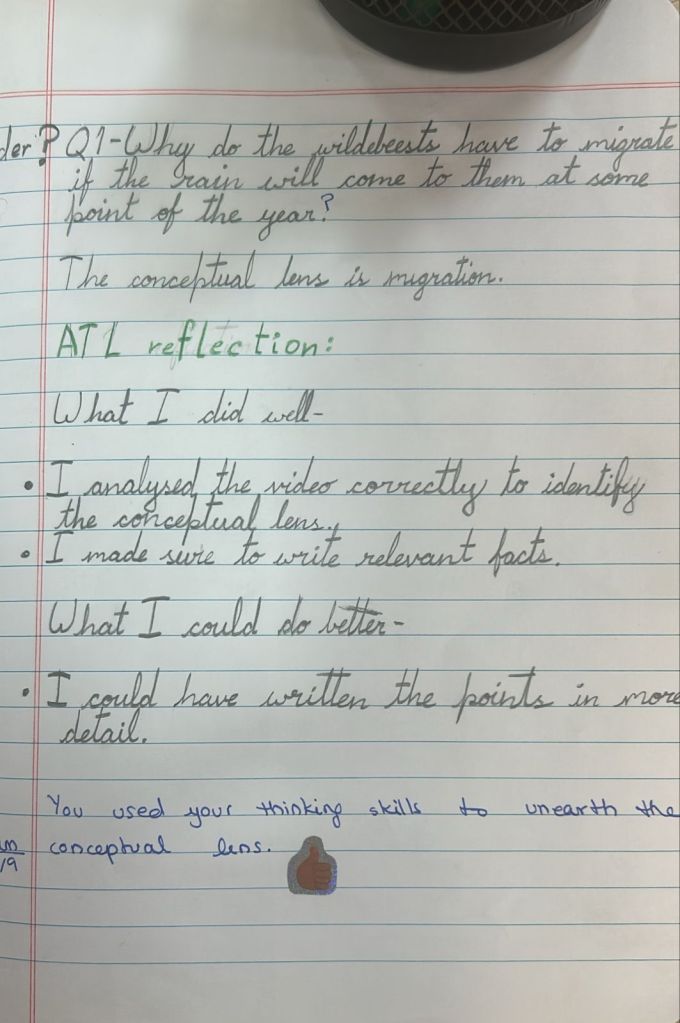 der? Q1-Why do the wildebeests have to migrate
if the rain will come to them at some
point of the year?
The conceptual lens is migration.
ATL reflection:
What I did well-
• I analysed the video correctly to identify
the conceptual lens.
• I made sure to write relevant facts.
What I could do better-
• I could have written the points in more
detail.
You used your thinking skills to unearth the
conceptual lens.
19